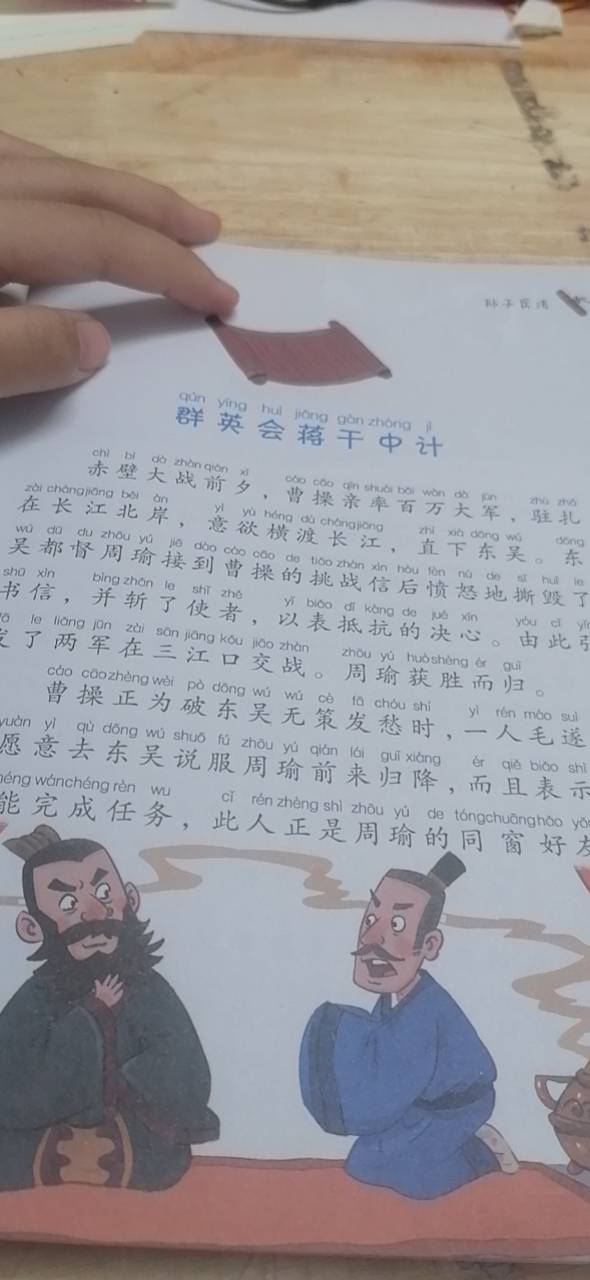 孙子兵法
qún yīng huì jiǎng gàn zhòng jì
群英会蒋干中计
chì bì dà zhàn qián xī cáo cāo qīn shuài bǎi wàn dà jūn zhù zhā
赤壁大战前夕，曹操亲率百万大军，驻扎
zài cháng jiāng běi àn yì yù héng dù cháng jiāng zhí xià dōng wú dōng
在长江北岸，意欲横渡长江，直下东吴。东
wú dū du zhōu yú jiē dào cáo cāo de tiǎo zhàn xìn hòu fèn nù de sī huǐ le
吴都督周瑜接到曹操的挑战信后愤怒地撕毁了
shū xìn bìng zhǎn le shǐ zhě yǐ biǎo dǐ kàng de jué xīn yóu cǐ yǐn
书信，并斩了使者，以表抵抗的决心。由此引
fā le liǎng jūn zài sān jiāng kǒu jiāo zhàn zhōu yú huò shèng ér guī
发了两军在三江口交战。周瑜获胜而归。
cáo cāo zhèng wèi pò dōng wú wú cè fā chóu shí yì rén máo suì
曹操正为破东吴无策发愁时，一人毛遂
yuàn yì qù dōng wú shuō fú zhōu yú qián lái guī xiáng ér qiě biǎo shì
愿意去东吴说服周瑜前来归降，而且表示
néng wán chéng rèn wu cǐ rén zhèng shì zhōu yú de tóng chuāng hǎo yǒu
能完成任务，此人正是周瑜的同窗好友